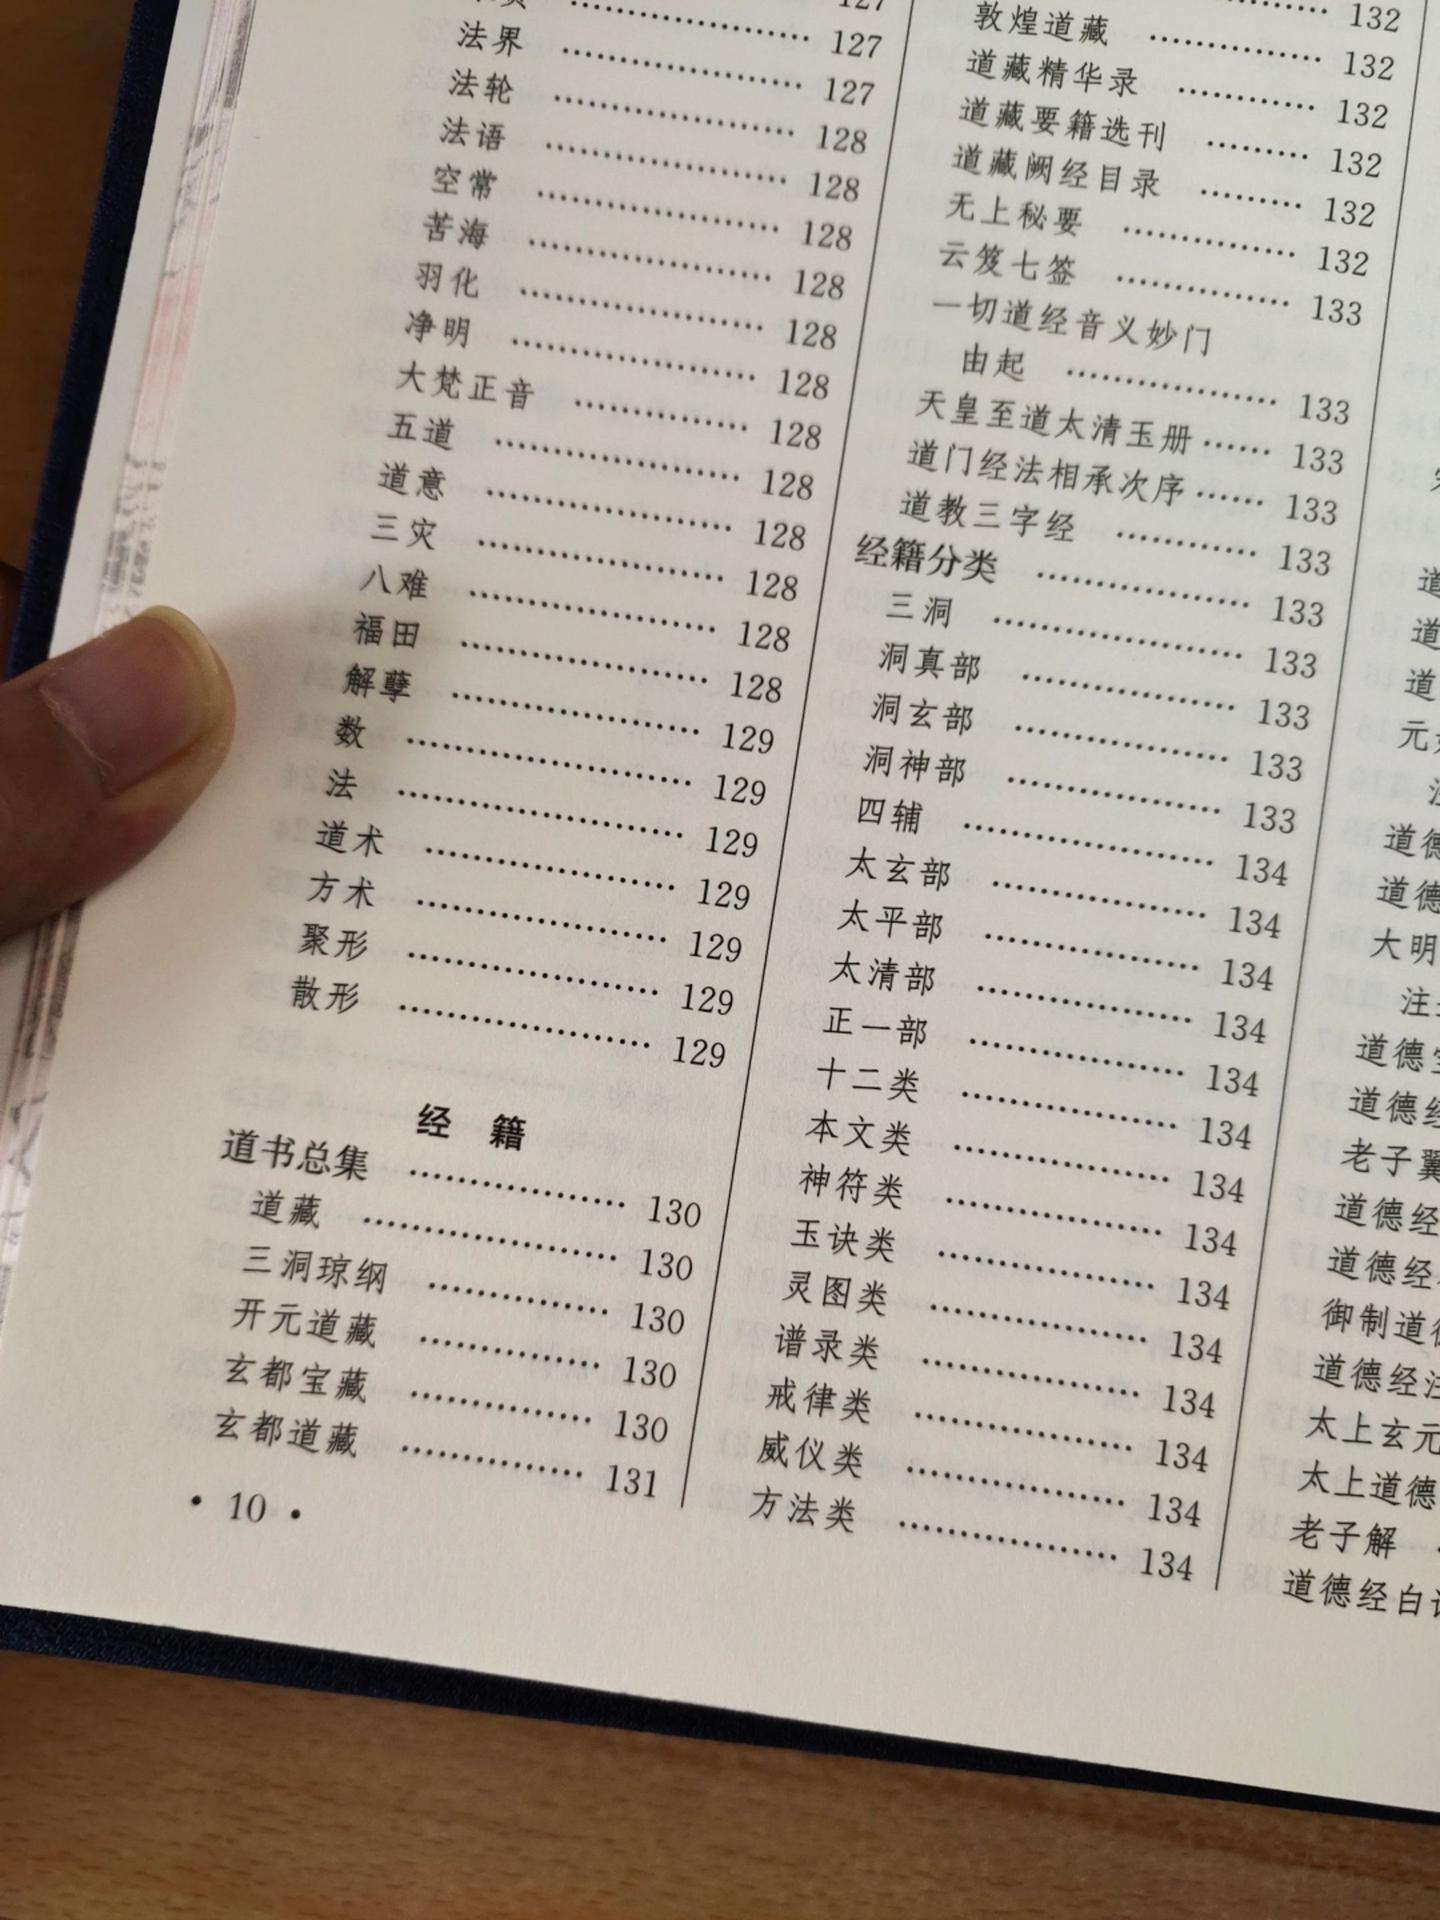 127
127
法界 …………………… 127
法轮 …………………… 128
法语 …………………… 128
空常 …………………… 128
苦海 …………………… 128
羽化 …………………… 128
净明 …………………… 128
大梵正音 ……………… 128
五道 …………………… 128
道意 …………………… 128
三灾 …………………… 128
八难 …………………… 128
福田 …………………… 128
解孽 …………………… 129
数 ……………………… 129
法 ……………………… 129
道术 …………………… 129
方术 …………………… 129
聚形 …………………… 129
散形 …………………… 129
经 籍
道书总集 ……………… 130
道藏 …………………… 130
三洞琼纲 ……………… 130
开元道藏 ……………… 130
玄都宝藏 ……………… 130
玄都道藏 ……………… 131
• 10 •
132
敦煌道藏 ……………… 132
道藏精华录 …………… 132
道藏要籍选刊 ………… 132
道藏阙经目录 ………… 132
无上秘要 ……………… 132
云笈七签 ……………… 133
一切道经音义妙门
由起 …………………… 133
天皇至道太清玉册 …… 133
道门经法相承次序 …… 133
道教三字经 …………… 133
经籍分类 ……………… 133
三洞 …………………… 133
洞真部 ………………… 133
洞玄部 ………………… 133
洞神部 ………………… 133
四辅 …………………… 134
太玄部 ………………… 134
太平部 ………………… 134
太清部 ………………… 134
正一部 ………………… 134
十二类 ………………… 134
本文类 ………………… 134
神符类 ………………… 134
玉诀类 ………………… 134
灵图类 ………………… 134
谱录类 ………………… 134
戒律类 ………………… 134
威仪类 ………………… 134
方法类 ………………… 134
道
道
道
元
注
道德
道德
大明
注
道德
道德经
老子翼
道德经
道德经
御制道德
道德经注
太上玄元
太上道德
老子解
道德经白